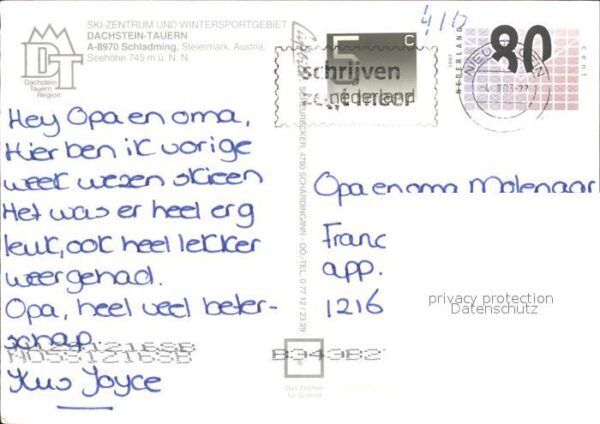 SKI-ZENTRUM UND WINTERSPORTGEBIET
DACHSTEIN-TAUERN
A-8970 Schladming, Steiermark, Austria
Seehöhe 745 m ü. N. N
DT
Dachstein
Tauern
Region
Hey Opa en oma,
Hier ben ik vorige
week wezen skieen
Het was er heel erg
leuk, ook heel lekker
weer gehad.
Opa, heel veel beter-
schap.
Kus Joyce
4780 SCHÄRDING/INN - OÖ.-TEL. 0 77 12 / 23 29
5 c
nederland
schrijven
80
cent
NEDERLAND
Opa en oma Molenaar
Franc
app.
1216
privacy protection
Datenschutz
Das Zeichen
für Qualität